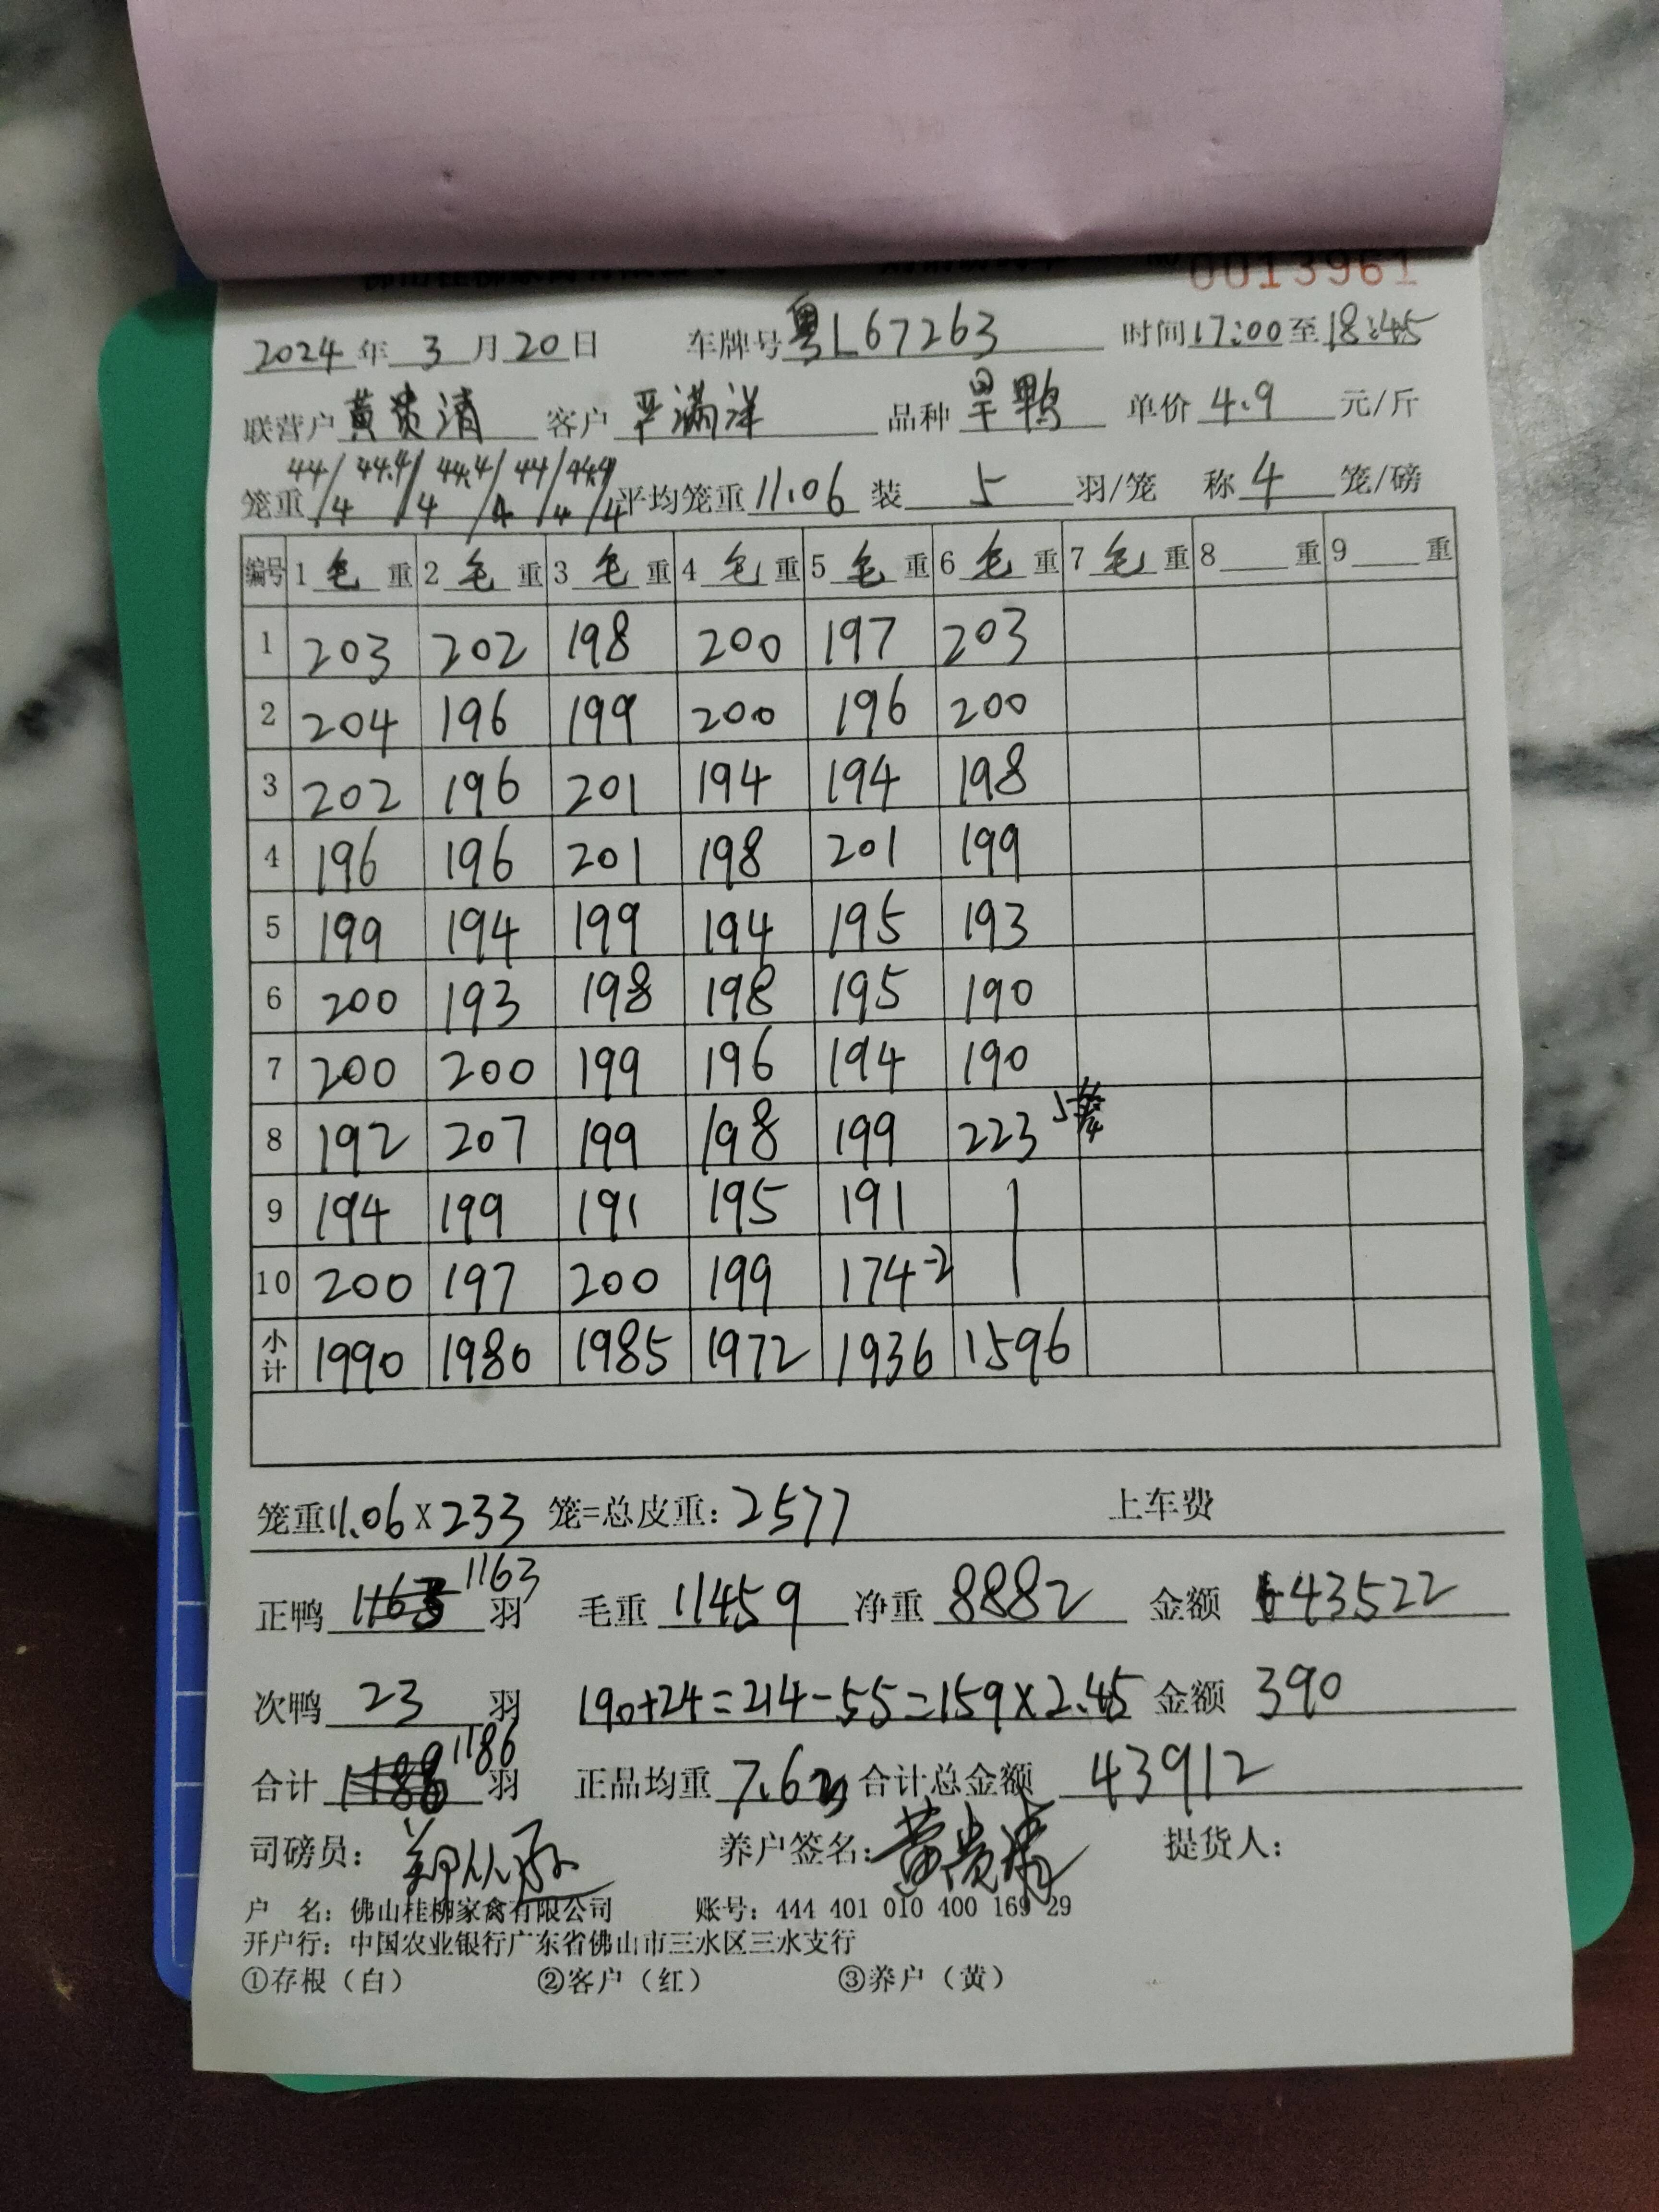 0013961
2024年3月20日 车牌号粤L67263 时间17:00至18:45
联营户黄贵清 客户严满洋 品种旱鸭 单价4.9元/斤
笼重44/4 44.4/4 44.4/4 44/4 44.4/4 平均笼重11.06装5羽/笼 称4笼/磅
编号 1毛重 2毛重 3毛重 4毛重 5毛重 6毛重 7毛重 8重 9重
1 203 202 198 200 197 203
2 204 196 199 200 196 200
3 202 196 201 194 194 198
4 196 196 201 198 201 199
5 199 194 199 194 195 193
6 200 193 198 198 195 190
7 200 200 199 196 194 190
8 192 207 199 198 199 223
9 194 199 191 195 191
10 200 197 200 199 174-2
小计 1990 1980 1985 1972 1936 1596
笼重11.06×233笼=总皮重:2577 上车费
正鸭1163羽 毛重11459 净重8882 金额43522
次鸭23羽 190+24=214-55=159×2.45 金额390
合计1186羽 正品均重7.63 合计总金额43912
司磅员: 养户签名:黄贵清 提货人:
户 名:佛山桂柳家禽有限公司 账号:444 401 010 400 169 29
开户行:中国农业银行广东省佛山市三水区三水支行
①存根(白) ②客户(红) ③养户(黄)